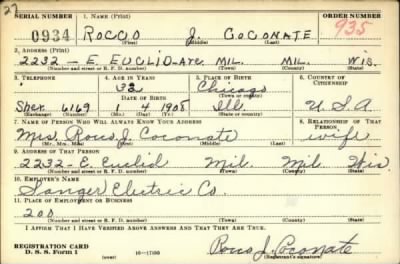 27
SERIAL NUMBER 1. NAME (Print) ORDER NUMBER
0934 ROCCO J. COCONATE 935
(First) (Middle) (Last)
2. ADDRESS (Print)
2232 - E. EUCLID-AVE. MIL. MIL. WIS.
(Number and street or R. F. D. number) (Town) (County) (State)
3. TELEPHONE 4. AGE IN YEARS 5. PLACE OF BIRTH 6. COUNTRY OF CITIZENSHIP
32 Chicago
DATE OF BIRTH (Town or county)
Sher. 6169 1 4 1908 Ill. U.S.A
(Exchange) (Number) (Mo.) (Day) (Yr.) (State or country)
7. NAME OF PERSON WHO WILL ALWAYS KNOW YOUR ADDRESS 8. RELATIONSHIP OF THAT PERSON
Mrs. Rocco J. Coconate wife
(Mr., Mrs., Miss) (First) (Middle) (Last)
9. ADDRESS OF THAT PERSON
2232 - E. Euclid Mil. Mil. Wis.
(Number and street or R. F. D. number) (Town) (County) (State)
10. EMPLOYER'S NAME
Electric Co.
11. PLACE OF EMPLOYMENT OR BUSINESS
200
(Number and street or R. F. D. number) (Town) (County) (State)
I AFFIRM THAT I HAVE VERIFIED ABOVE ANSWERS AND THAT THEY ARE TRUE.
REGISTRATION CARD
D. S. S. Form 1 (over) 16-17105 Rocco J. Coconate
(Registrant's signature)